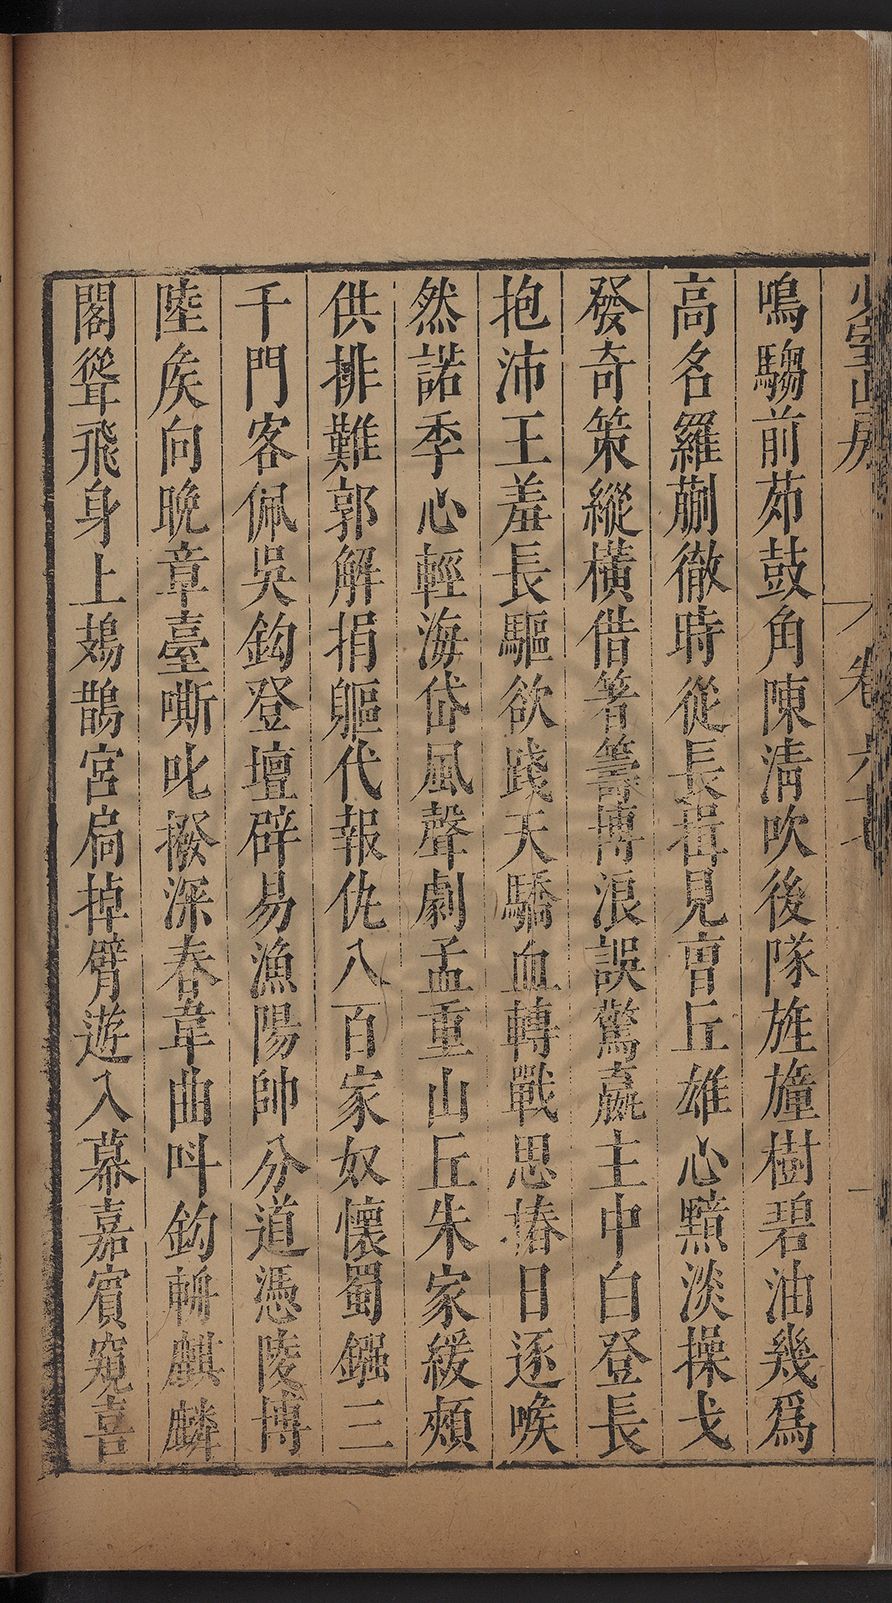 少室山房 卷六十
鳴騶前茹鼓角陳淸吹後隊旌旜樹碧油幾爲
高名羅蒯徹時從長揖見曺丘雄心黯淡操戈
發奇策縱橫借箸籌博浪誤驚嬴主中白登長
抱沛王羞長驅欲踐天驕血轉戰思摏日逐喉
然諾季心輕海岱風聲劇孟重山丘朱家緩頰
供排難郭解捐軀代報仇八百家奴懷蜀鏹三
千門客佩吳鈎登壇辟易漁陽帥分道憑陵博
陸矦向晚章臺嘶叱撥深春韋曲呌鈎輈麒麟
閣聳飛身上鳷鵲宮扃掉臂遊入幕嘉賓窺喜